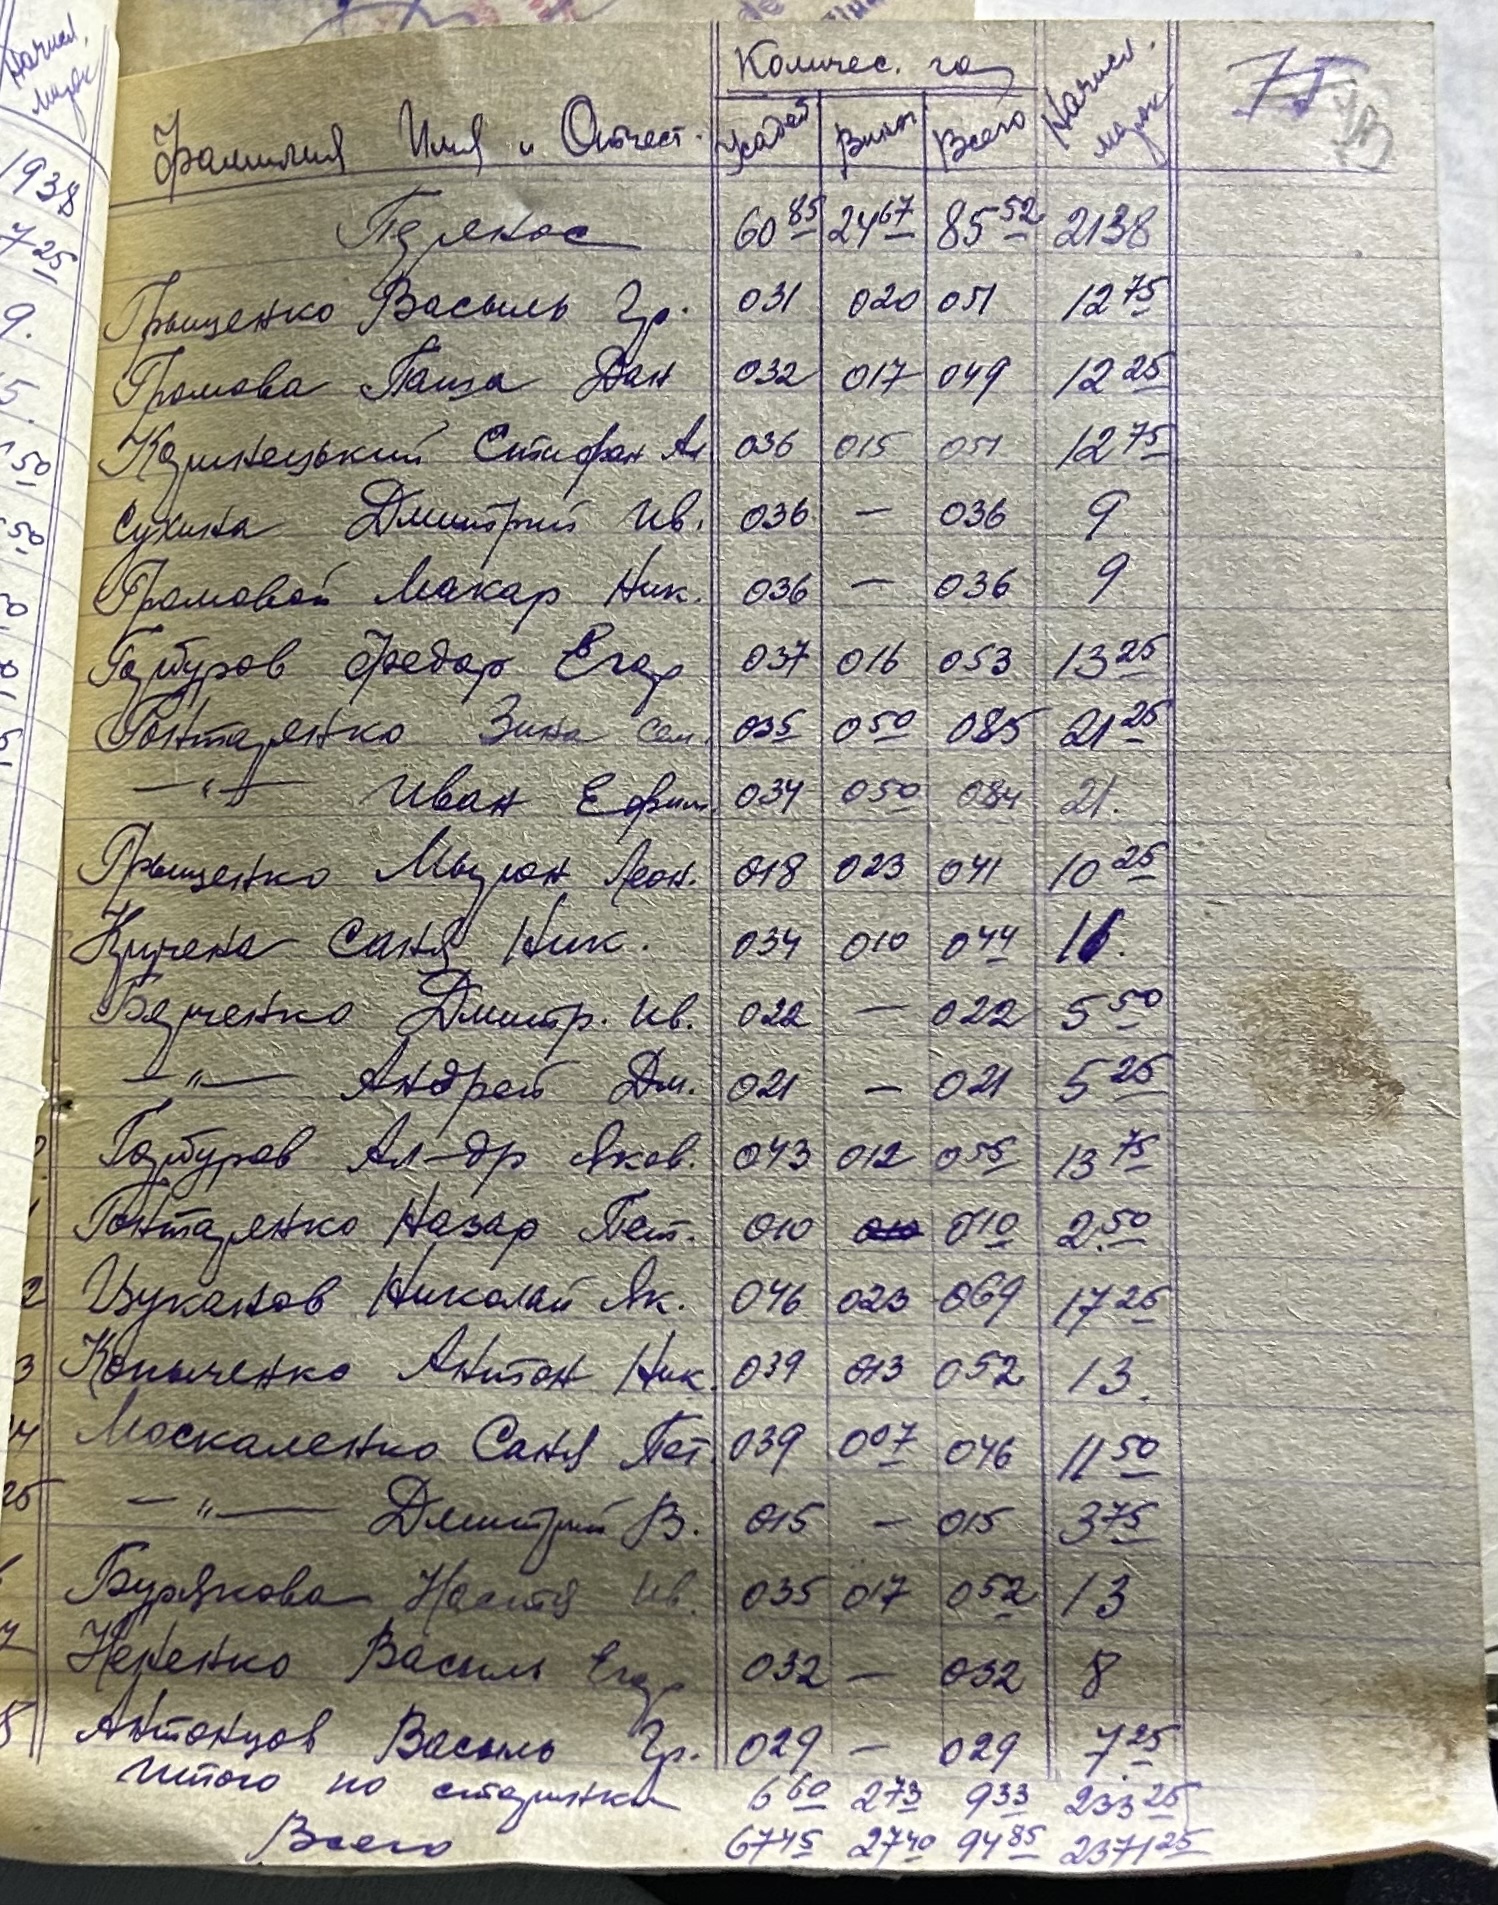 75
Количес. га
Фамилия Имя и Отчест. Усадеб Вины Всего Начисл. марок
Перенос 60 85 24 67 85 52 2138
Грыщенко Васыль Гр. 031 020 051 12 75
Громова Паша Дан 032 017 049 12 25
Стифан Ал 036 015 051 12 75
Сухина Дмитрий Ив. 036 — 036 9
Громовой Макар Ник. 036 — 036 9
Гарбуров Федор Егор 037 016 053 13 25
Гонтаренко Зина Сем. 035 0 50 085 21 25
—"— Иван Ефим. 034 050 084 21.
Грыщенко Мырон Леон. 018 023 041 10 25
Саня Ник. 034 010 044 11.
Дмитр. Ив. 022 — 022 5 50
—"— Андрей Дм. 021 — 021 5 25
Гарбуров Ал-др Яков. 043 012 055 13 75
Гонтаренко Назар Пет. 010 010 010 2.50
Цуканов Николай Як. 046 023 069 17 25
Копыченко Антон Ник. 039 013 052 13.
Москаленко Саня Пет. 039 007 046 11 50
—"— Дмитрий В. 015 — 015 3 75
Бурякова Настя Ив. 035 017 052 13
Васыль Егор 032 — 032 8
Антонцов Васыль Гр. 029 — 029 7 25
Итого по старинки 6 60 2 73 9 33 233 25
Всего 67 45 27 40 94 85 2371 25